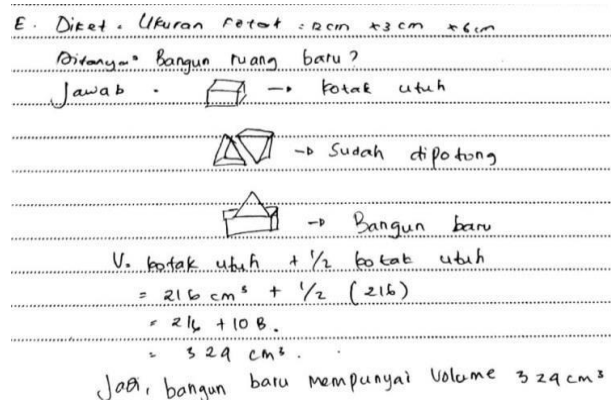 E. Diket. Ukuran kotak : 12cm x3cm x6cm
Ditanya: Bangun ruang baru?
Jawab . → kotak utuh
→ Sudah dipotong
→ Bangun baru
V. kotak utuh + 1/2 kotak utuh
= 216 cm³ + 1/2 (216)
= 216 + 108.
= 324 cm³.
Jadi, bangun baru mempunyai volume 324cm³